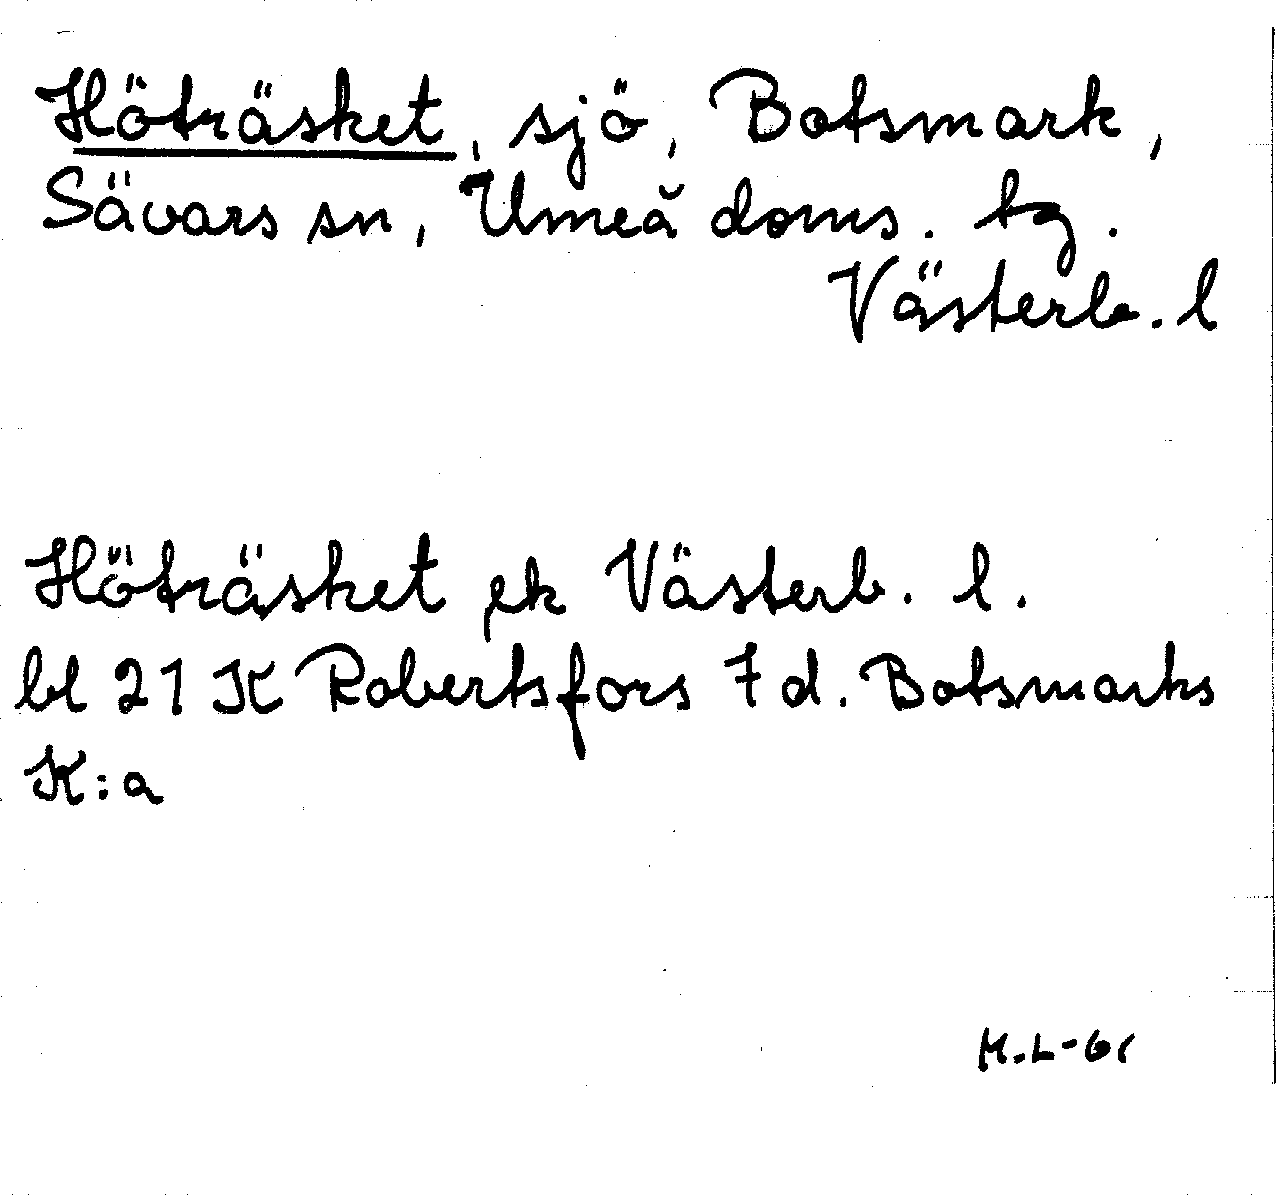 Höträsket, sjö, Botsmark,
Sävars sn, Umeå doms. tg.
Västerb. l
Höträsket ek Västerb. l.
bl 21 K Robertsfors 7 d. Botsmarks
K:a
M.L-61